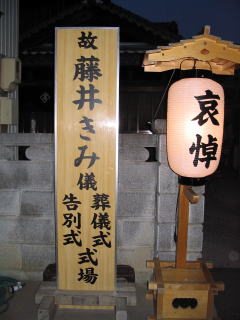 故 藤井きみ 儀
葬儀式
告別式
式場
哀悼